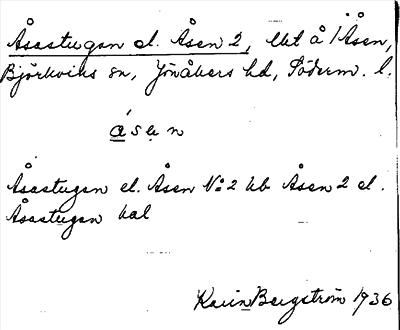 Åsastugan el. Åsen 2, lht å 1 Åsen,
Björkviks sn, Jönåkers hd, Söderm. l.
ás e n
Åsastugan el. Åsen No 2 hb Åsen 2 el.
Åsastugan kal
Karin Bergström 1936